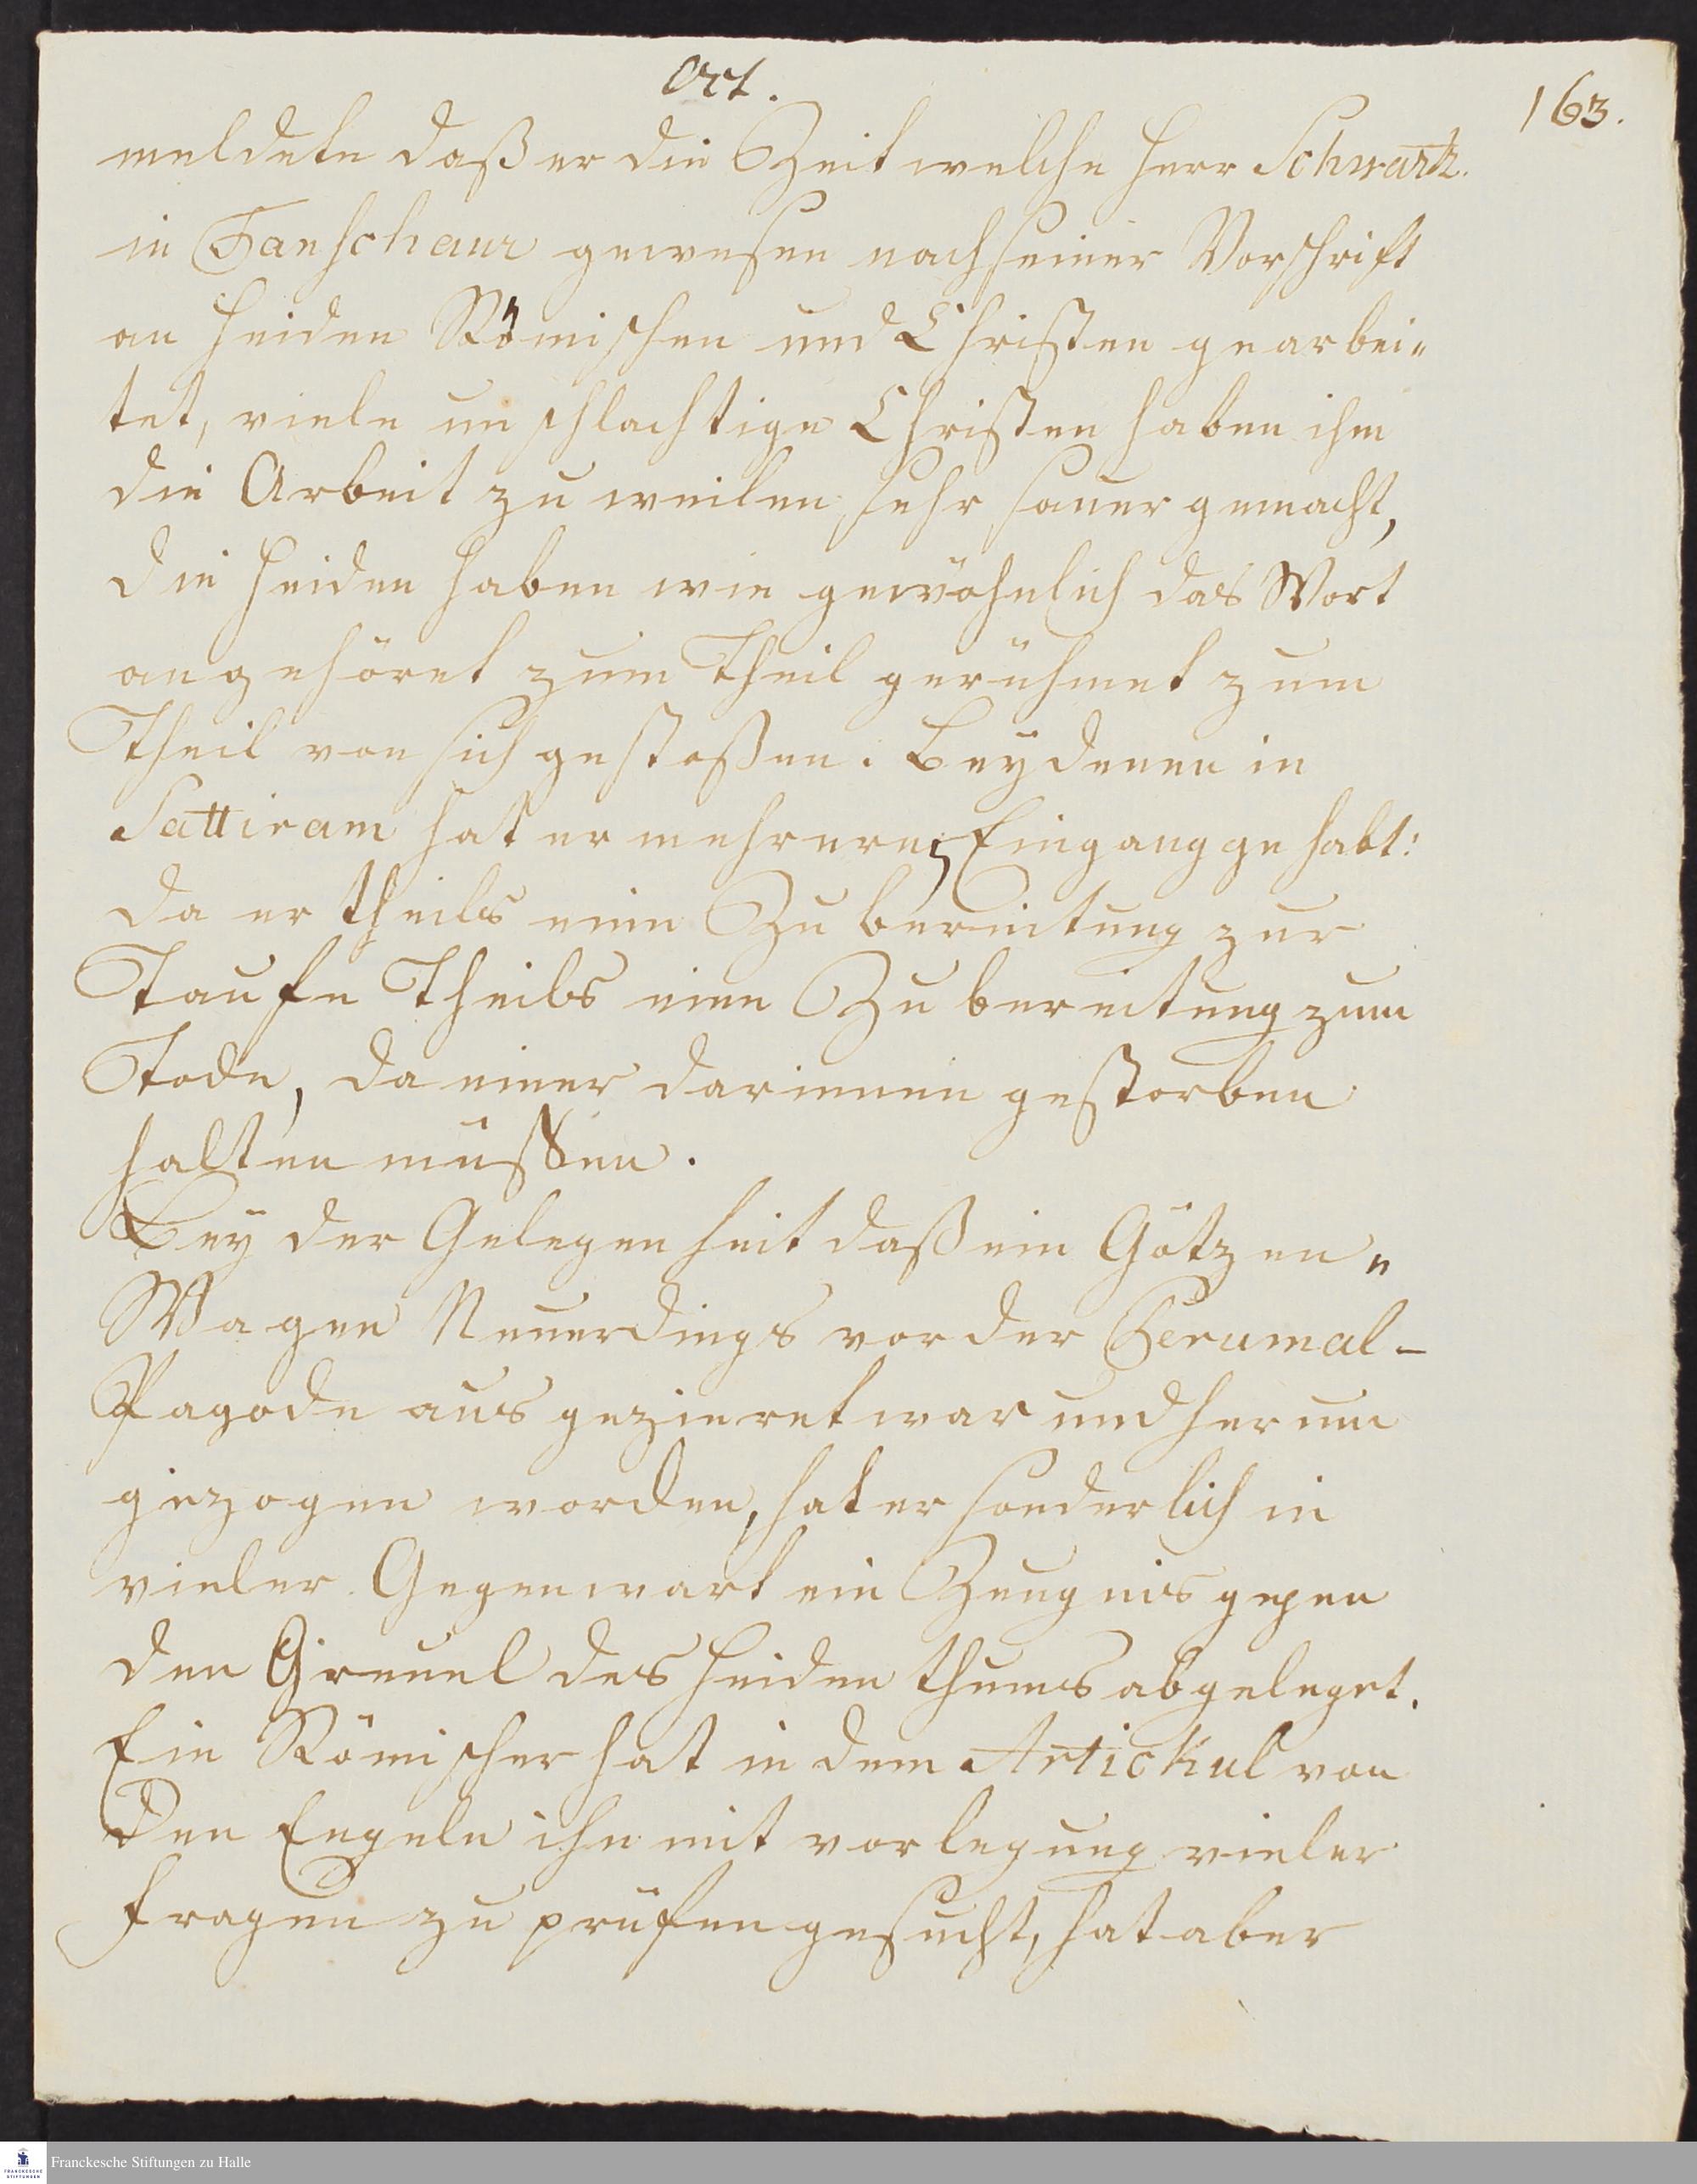 Oct.
163.
meldete daß er die Zeit welche Herr Schwartz.
in Tanschaur gewesen nach seiner Vorschrift
an Heiden Römischen und Christen gearbei„
tet, viele unschlachtige Christen haben ihm
die Arbeit zu weilen sehr sauer gemacht,
die Heiden haben wie gewöhnlich das Wort
angehöret zum Theil gerühmet zum
Theil von sich gestoßen. Beÿ denen in
Sattiram hat er mehreren Eingang gehabt:
da er theils eine Zubereitung zur
Taufe Theils eine Zubereitung zum
Tode, da einer darinnen gestorben
halten müssen.
Beÿ der Gelegenheit daß ein Götzen„
Wagen Neuerdings vor der Perumal-
Pagode aus gezieret war und herum
gezogen worden, hat er sonderlich in
vieler Gegenwart ein Zeugnis gegen
den Greuel des Heidenthums abgeleget.
Ein Römischer hat in dem Artickul von
den Engeln ihn mit vorlegung vieler
Fragen zu prüfen gesucht, hat aber
Franckesche Stiftungen zu Halle
FRANCKESCHE
STIFTUNGEN